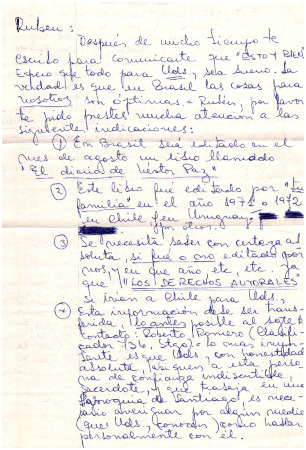 Ruben:
Después de mucho tiempo te
escribo para comunicarte que "ESTOY BIEN"
Espero que todo para Uds, sea bueno. La
verdad es que en Brasil las cosas para
nosotros son óptimas. = Ruben, por favor
te pido prestes mucha atención a las
siguiente indicaciones:
① En Brasil será editado en el
mes de agosto un libro llamado
"El diario de Néstor Paz"
② Este libro fué editado por "En
familia" en el año 1971 o 1972
en Chile en Uruguay,
por otros.
③ Se necesita saber con certeza ab
soluta, si fue o no editado por
nos, y en que año, etc, etc. Ya
que "LOS DERECHOS AUTORALES"
se irían a Chile para Uds,
④ Esta información debe ser trans-
ferida lo antes posible al
contacto: Roberto Romero (Clasifi-
cador 316, Stgo) = lo mas impor-
tante es que Uds, con honestidad
absoluta, a esta perso
na de confianza indiscutible
sacerdote, y que trabaja en una
Parroquia de Santiago, es nece-
sario averiguar por algún medio
(que Uds, conocen) como hablar
personalmente con él.